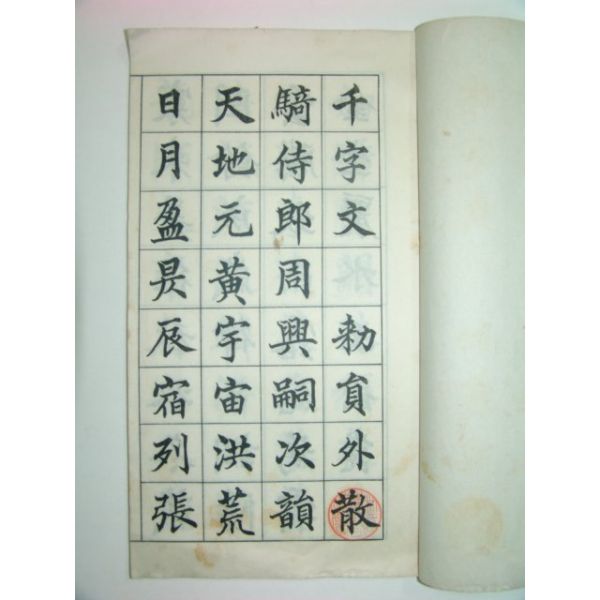 千字文 勑貟外散
騎侍郎周興嗣次韻
天地元黃宇宙洪荒
日月盈昃辰宿列張